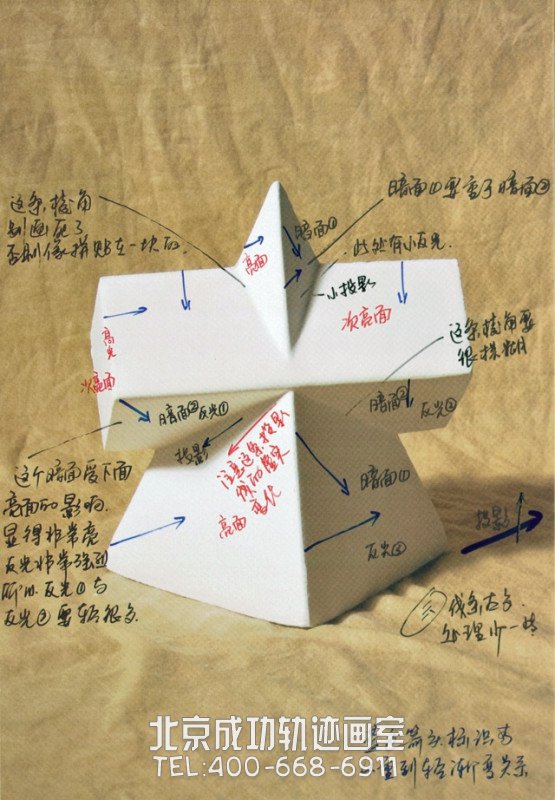 这条棱角
别画死了
否则像拼贴在一块的
暗面①要重于暗面②
此处有小反光.
暗面①
亮面
小投影
次亮面
这条棱角要
很模糊
高光
次亮面
暗面② 反光①
投影
暗面②
反光②
注意这条投影
线的虚实
变化
亮面
暗面①
反光③
投影
这个暗面受下面
亮面的影响.
显得非常亮
反光非常强烈
所以 反光①与
反光②要轻很多.
线条
处理少一些
箭头标识
重到轻渐变关系
北京成功轨迹画室
TEL:400-668-6911